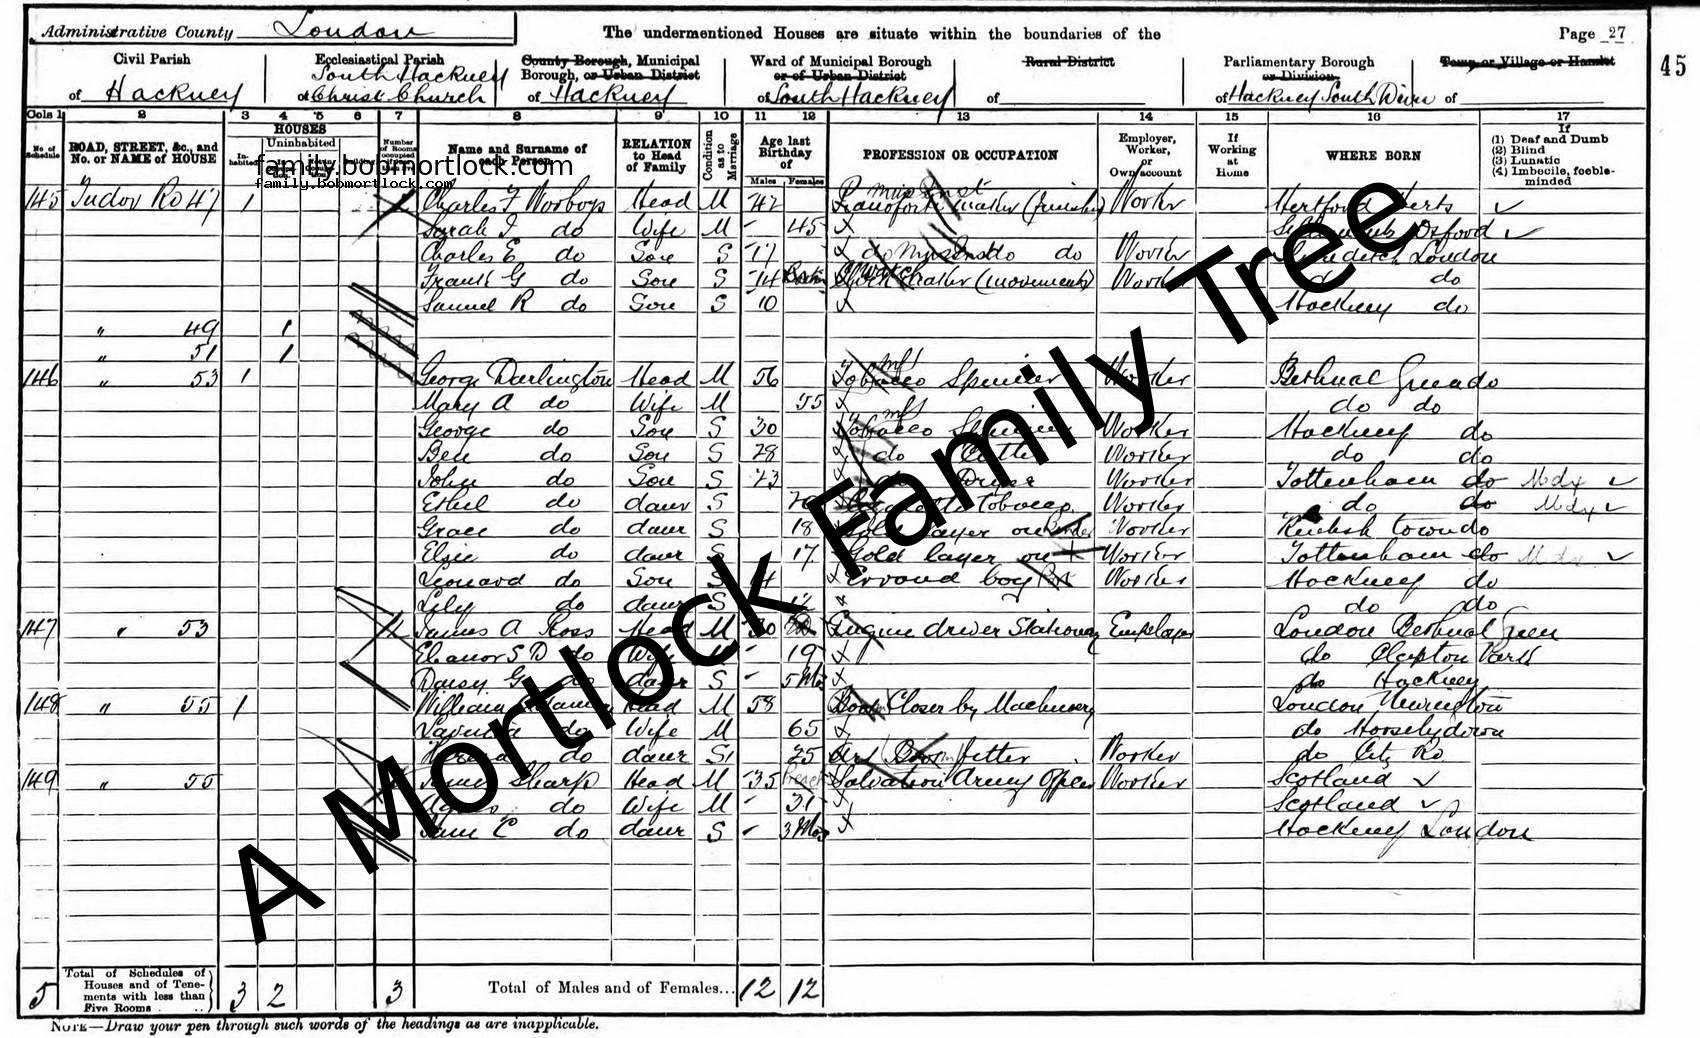 Administrative County London
The undermentioned Houses are situate within the boundaries of the
Page 27
45
Civil Parish of Hackney
Ecclesiastical Parish of South Hackney Christ Church
County Borough, Municipal Borough, or Urban District of Hackney
Ward of Municipal Borough or of Urban District of South Hackney
Rural District of
Parliamentary Borough or Division of Hackney South
Town or Village or Hamlet of
Cols 1 2 3 4 5 6 7 8 9 10 11 12 13 14 15 16 17
No. of Schedule
ROAD, STREET, &c., and No. or NAME of HOUSE
HOUSES
Inhabited
Uninhabited
Number of Rooms occupied
Name and Surname of each Person
RELATION to Head of Family
Condition as to Marriage
Age last Birthday of
Males Females
PROFESSION OR OCCUPATION
Employer, Worker, or Own account
If Working at Home
WHERE BORN
If (1) Deaf and Dumb (2) Blind (3) Lunatic (4) Imbecile, feeble-minded
family.bobmortlock.com
family.bobmortlock.com
145 Tudor Ro 47 1 Charles F Worboys Head M 42 Pianoforte maker (finisher) Worker Hertford Herts
Sarah J do Wife M 45 Oxford
Charles E do Son S 17 do do Worker London
Frank G do Son S 14 Watch maker (movement) Worker do do
Samuel R do Son S 10 Hackney do
" 49 1
" 51 1
146 " 53 1 George Darlington Head M 56 Tobacco Spinner Worker Bethnal Green do
Mary A do Wife M 55 do do
George do Son S 30 Tobacco Spinner Worker Hackney do
Ben do Son S 28 do Cutter Worker do do
John do Son S 23 Worker Tottenham do Mdx
Ethel do daur S Tobacco Worker do do Mdx
Grace do daur S 18 Gold layer on Worker Kentish town do
Elsie do daur S 17 Gold layer on Worker Tottenham do Mdx
Leonard do Son S 14 Errand boy Worker Hackney do
Lily do daur S 12 do do
147 " 53 James A Ross Head M 30 Engine driver Stationary Employer London Bethnal Green
Eleanor S D do Wife M 19 do Clapton Park
Daisy G do daur S 5 Mos do Hackney
148 " 55 1 William Head M 58 Boot Closer by Machinery London Newington
Lavinia do Wife M 65 do Horselydown
do daur S 25 fitter Worker do City Ro
149 " 55 James Sharp Head M 35 Salvation Army Officer Worker Scotland
Agnes do Wife M 31 Scotland
C do daur S 3 Mos Hackney London
A Mortlock Family Tree
5 Total of Schedules of Houses and of Tenements with less than Five Rooms .. 3 2 3 Total of Males and of Females... 12 12
NOTE—Draw your pen through such words of the headings as are inapplicable.